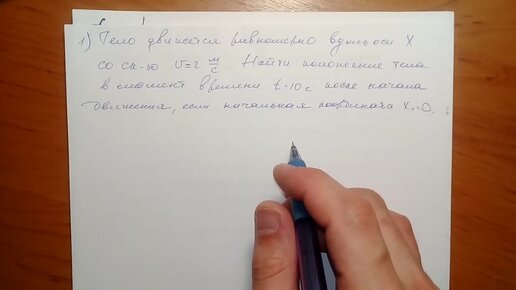 1) Тело движется равномерно вдоль оси X
со ск-ю V=2 м/с. Найти положение тела
в момент времени t=10с после начала
движения, если начальная координата X₀=0.